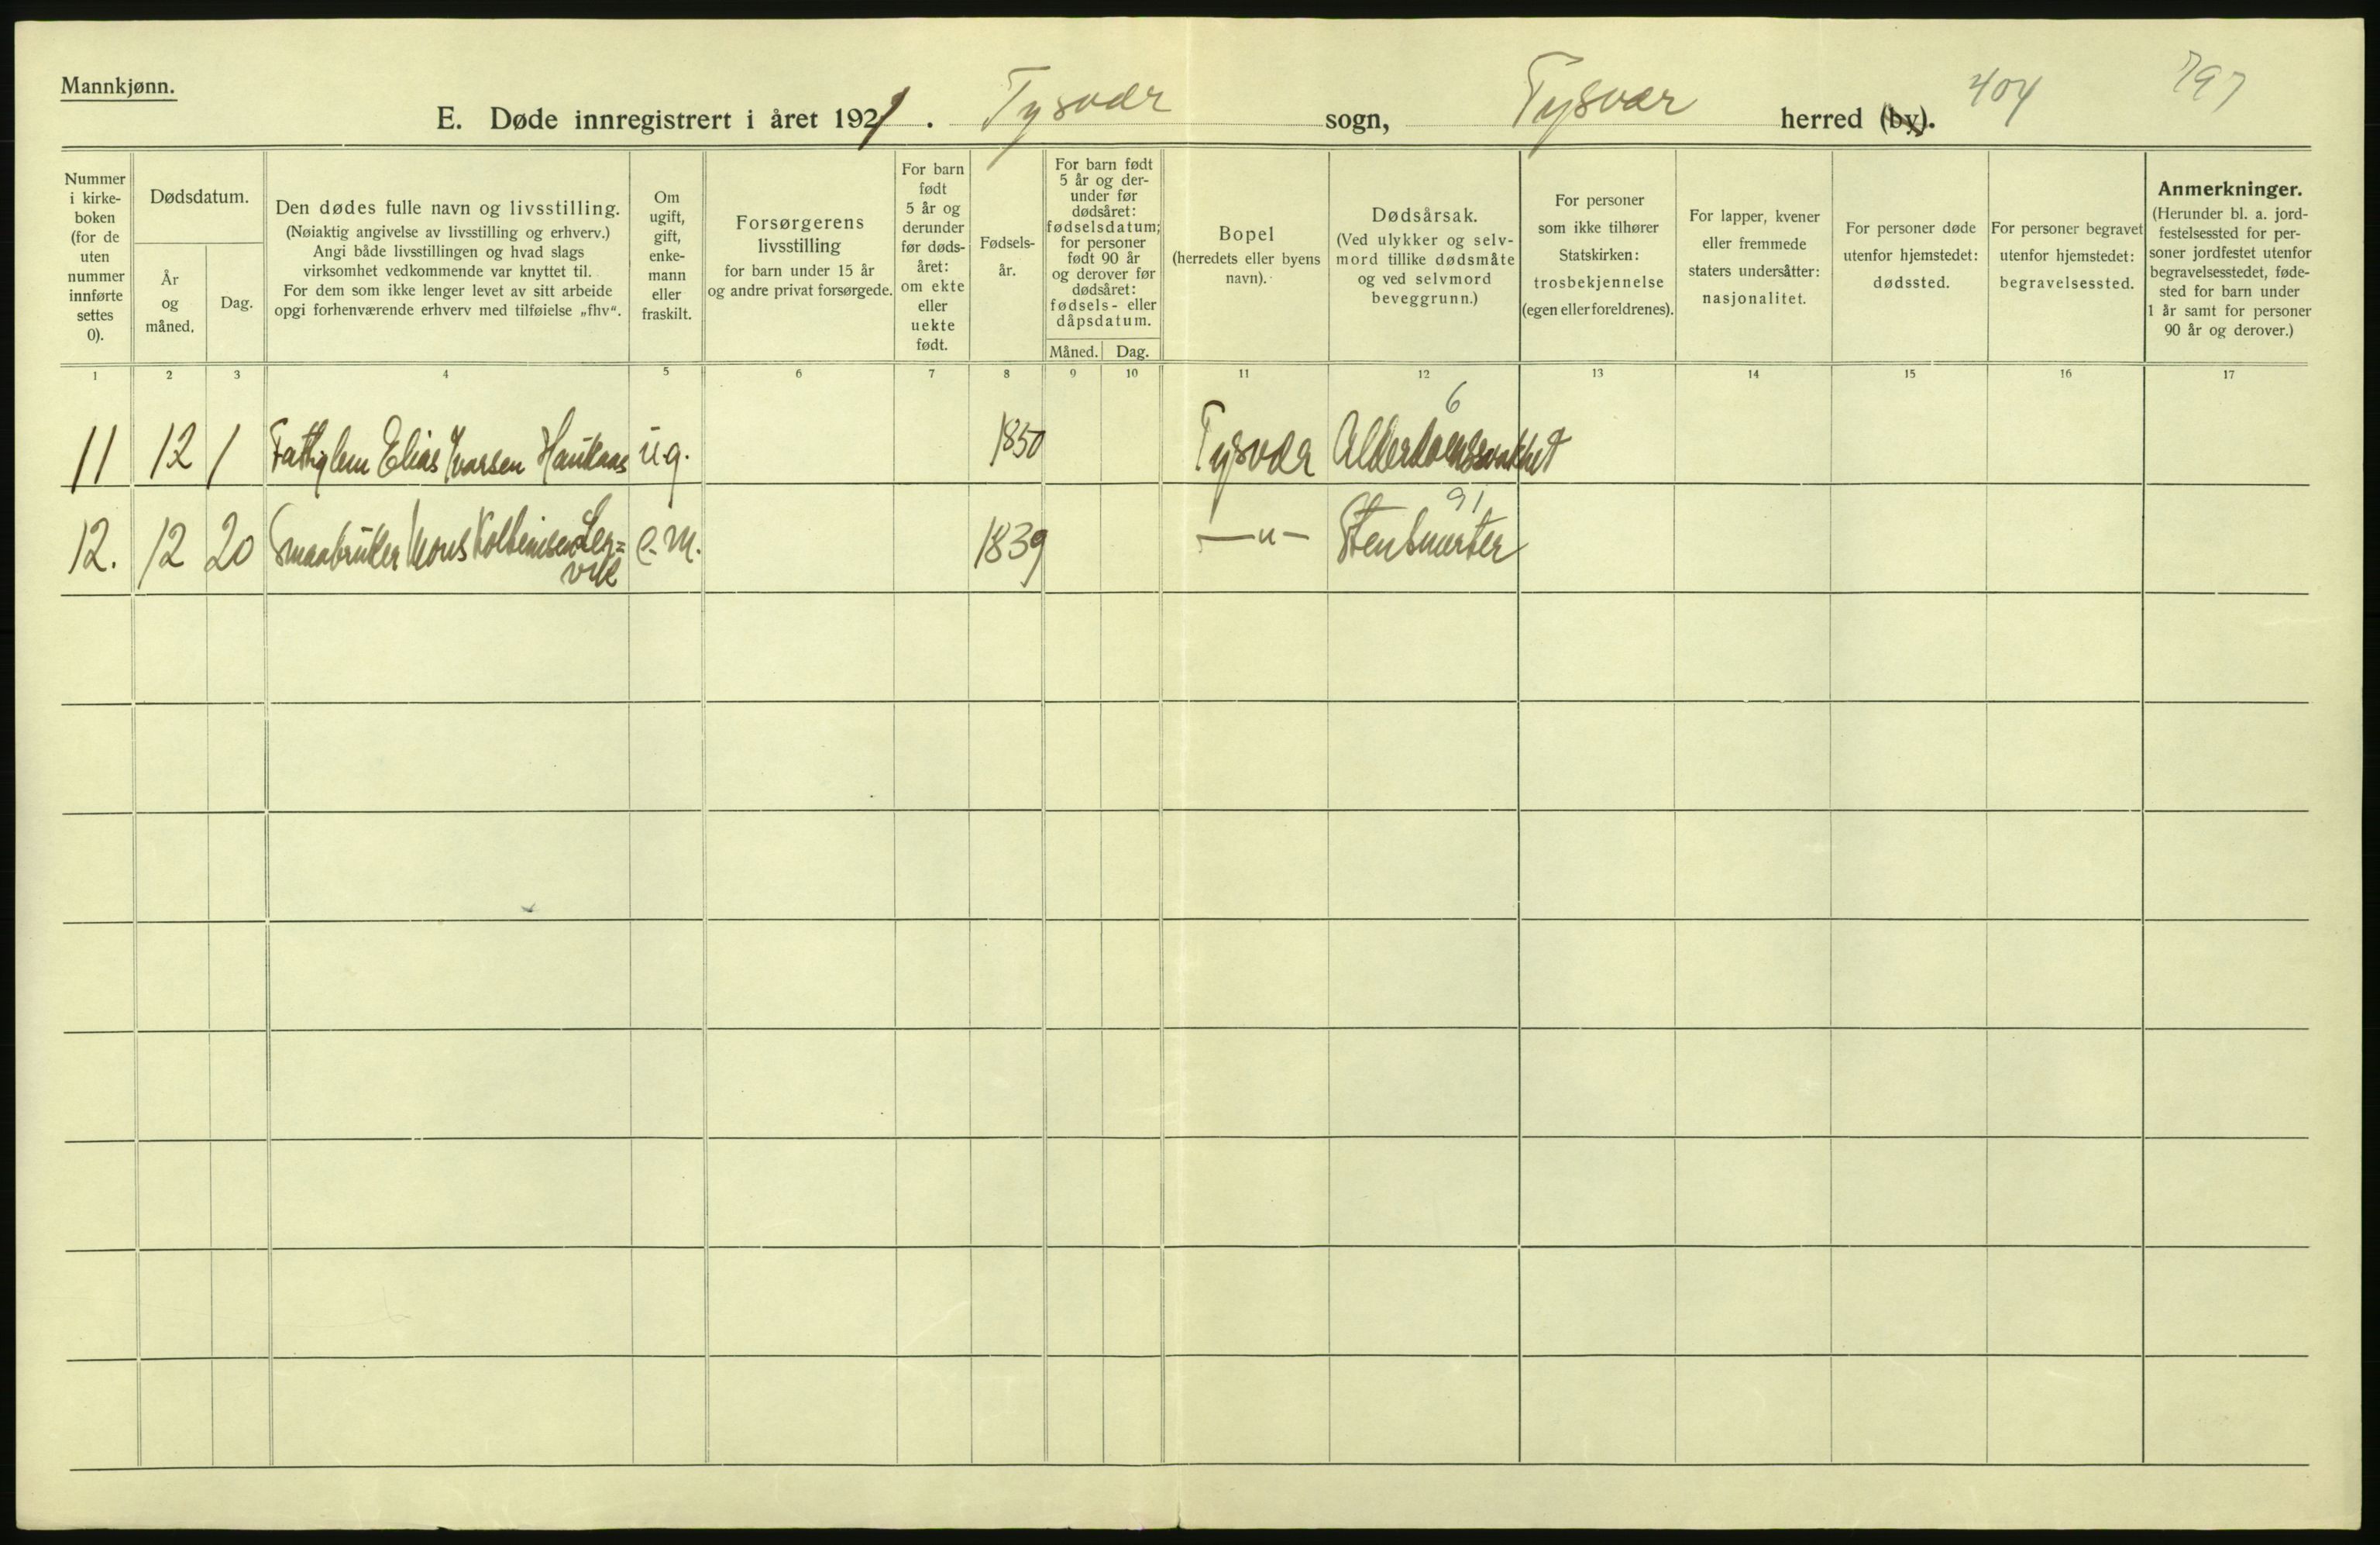 Mannkjønn.
E. Døde innregistrert i året 1921. Tysvær sogn, Tysvær herred (by). 404 797
Nummer i kirke- boken (for de uten nummer innførte settes 0).
Dødsdatum.
År og måned.
Dag.
Den dødes fulle navn og livsstilling.
(Nøiaktig angivelse av livsstilling og erhverv.)
Angi både livsstillingen og hvad slags
virksomhet vedkommende var knyttet til.
For dem som ikke lenger levet av sitt arbeide
opgi forhenværende erhverv med tilføielse „fhv“.
Om ugift, gift, enke- mann eller fraskilt.
Forsørgerens
livsstilling
for barn under 15 år
og andre privat forsørgede.
For barn født 5 år og derunder før døds- året: om ekte eller uekte født.
Fødsels- år.
For barn født 5 år og der- under før dødsåret: fødselsdatum; for personer født 90 år og derover før dødsåret: fødsels- eller dåpsdatum.
Måned. Dag.
Bopel
(herredets eller byens
navn).
Dødsårsak.
(Ved ulykker og selv-
mord tillike dødsmåte
og ved selvmord
beveggrunn.)
For personer
som ikke tilhører
Statskirken:
trosbekjennelse
(egen eller foreldrenes).
For lapper, kvener
eller fremmede
staters undersåtter:
nasjonalitet.
For personer døde
utenfor hjemstedet:
dødssted.
For personer begravet
utenfor hjemstedet:
begravelsessted.
Anmerkninger.
(Herunder bl. a. jord-
festelsessted for per-
soner jordfestet utenfor
begravelsesstedet, føde-
sted for barn under
1 år samt for personer
90 år og derover.)
1 2 3 4 5 6 7 8 9 10 11 12 13 14 15 16 17
6
11 12 1 Fattiglem Elias Ivarsen Haukaas ug. 1850 Tysvær Alderdomssvakhet
91
12. 12 20 Smaabruker Mons Kolbeinsen Ler=
vik e.m. 1839 —„— Stensmerter